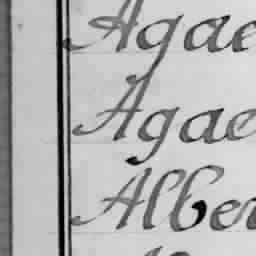 Agae
Agae
Alber